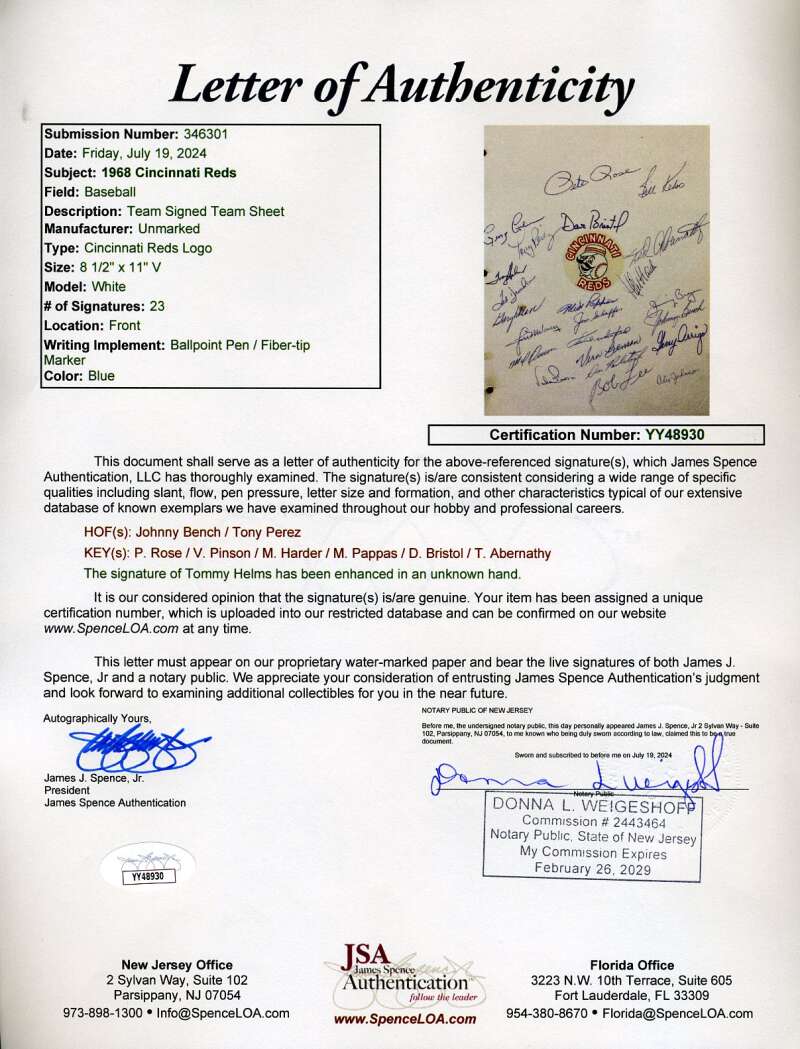 Letter of Authenticity
Submission Number: 346301
Date: Friday, July 19, 2024
Subject: 1968 Cincinnati Reds
Field: Baseball
Description: Team Signed Team Sheet
Manufacturer: Unmarked
Type: Cincinnati Reds Logo
Size: 8 1/2" x 11" V
Model: White
# of Signatures: 23
Location: Front
Writing Implement: Ballpoint Pen / Fiber-tip
Marker
Color: Blue
Pete Rose
Dave Bristol
Tony Perez
CINCINNATI
REDS
Ted Abernathy
Milt Pappas
Johnny Bench
Gerry Arrigo
Bob Lee
Alex Johnson
Certification Number: YY48930
This document shall serve as a letter of authenticity for the above-referenced signature(s), which James Spence
Authentication, LLC has thoroughly examined. The signature(s) is/are consistent considering a wide range of specific
qualities including slant, flow, pen pressure, letter size and formation, and other characteristics typical of our extensive
database of known exemplars we have examined throughout our hobby and professional careers.
HOF(s): Johnny Bench / Tony Perez
KEY(s): P. Rose / V. Pinson / M. Harder / M. Pappas / D. Bristol / T. Abernathy
The signature of Tommy Helms has been enhanced in an unknown hand.
It is our considered opinion that the signature(s) is/are genuine. Your item has been assigned a unique
certification number, which is uploaded into our restricted database and can be confirmed on our website
www.SpenceLOA.com at any time.
This letter must appear on our proprietary water-marked paper and bear the live signatures of both James J.
Spence, Jr and a notary public. We appreciate your consideration of entrusting James Spence Authentication's judgment
and look forward to examining additional collectibles for you in the near future.
Autographically Yours,
James J. Spence, Jr.
President
James Spence Authentication
NOTARY PUBLIC OF NEW JERSEY
Before me, the undersigned notary public, this day personally appeared James J. Spence, Jr 2 Sylvan Way - Suite
102, Parsippany, NJ 07054, to me known who being duly sworn according to law, claimed this to be a true
document.
Sworn and subscribed to before me on July 19, 2024
Donna L Weigeshoff
Notary Public
DONNA L. WEIGESHOFF
Commission # 2443464
Notary Public, State of New Jersey
My Commission Expires
February 26, 2029
YY48930
New Jersey Office
2 Sylvan Way, Suite 102
Parsippany, NJ 07054
973-898-1300 • Info@SpenceLOA.com
JSA
James Spence
Authentication™
follow the leader
www.SpenceLOA.com
Florida Office
3223 N.W. 10th Terrace, Suite 605
Fort Lauderdale, FL 33309
954-380-8670 • Florida@SpenceLOA.com